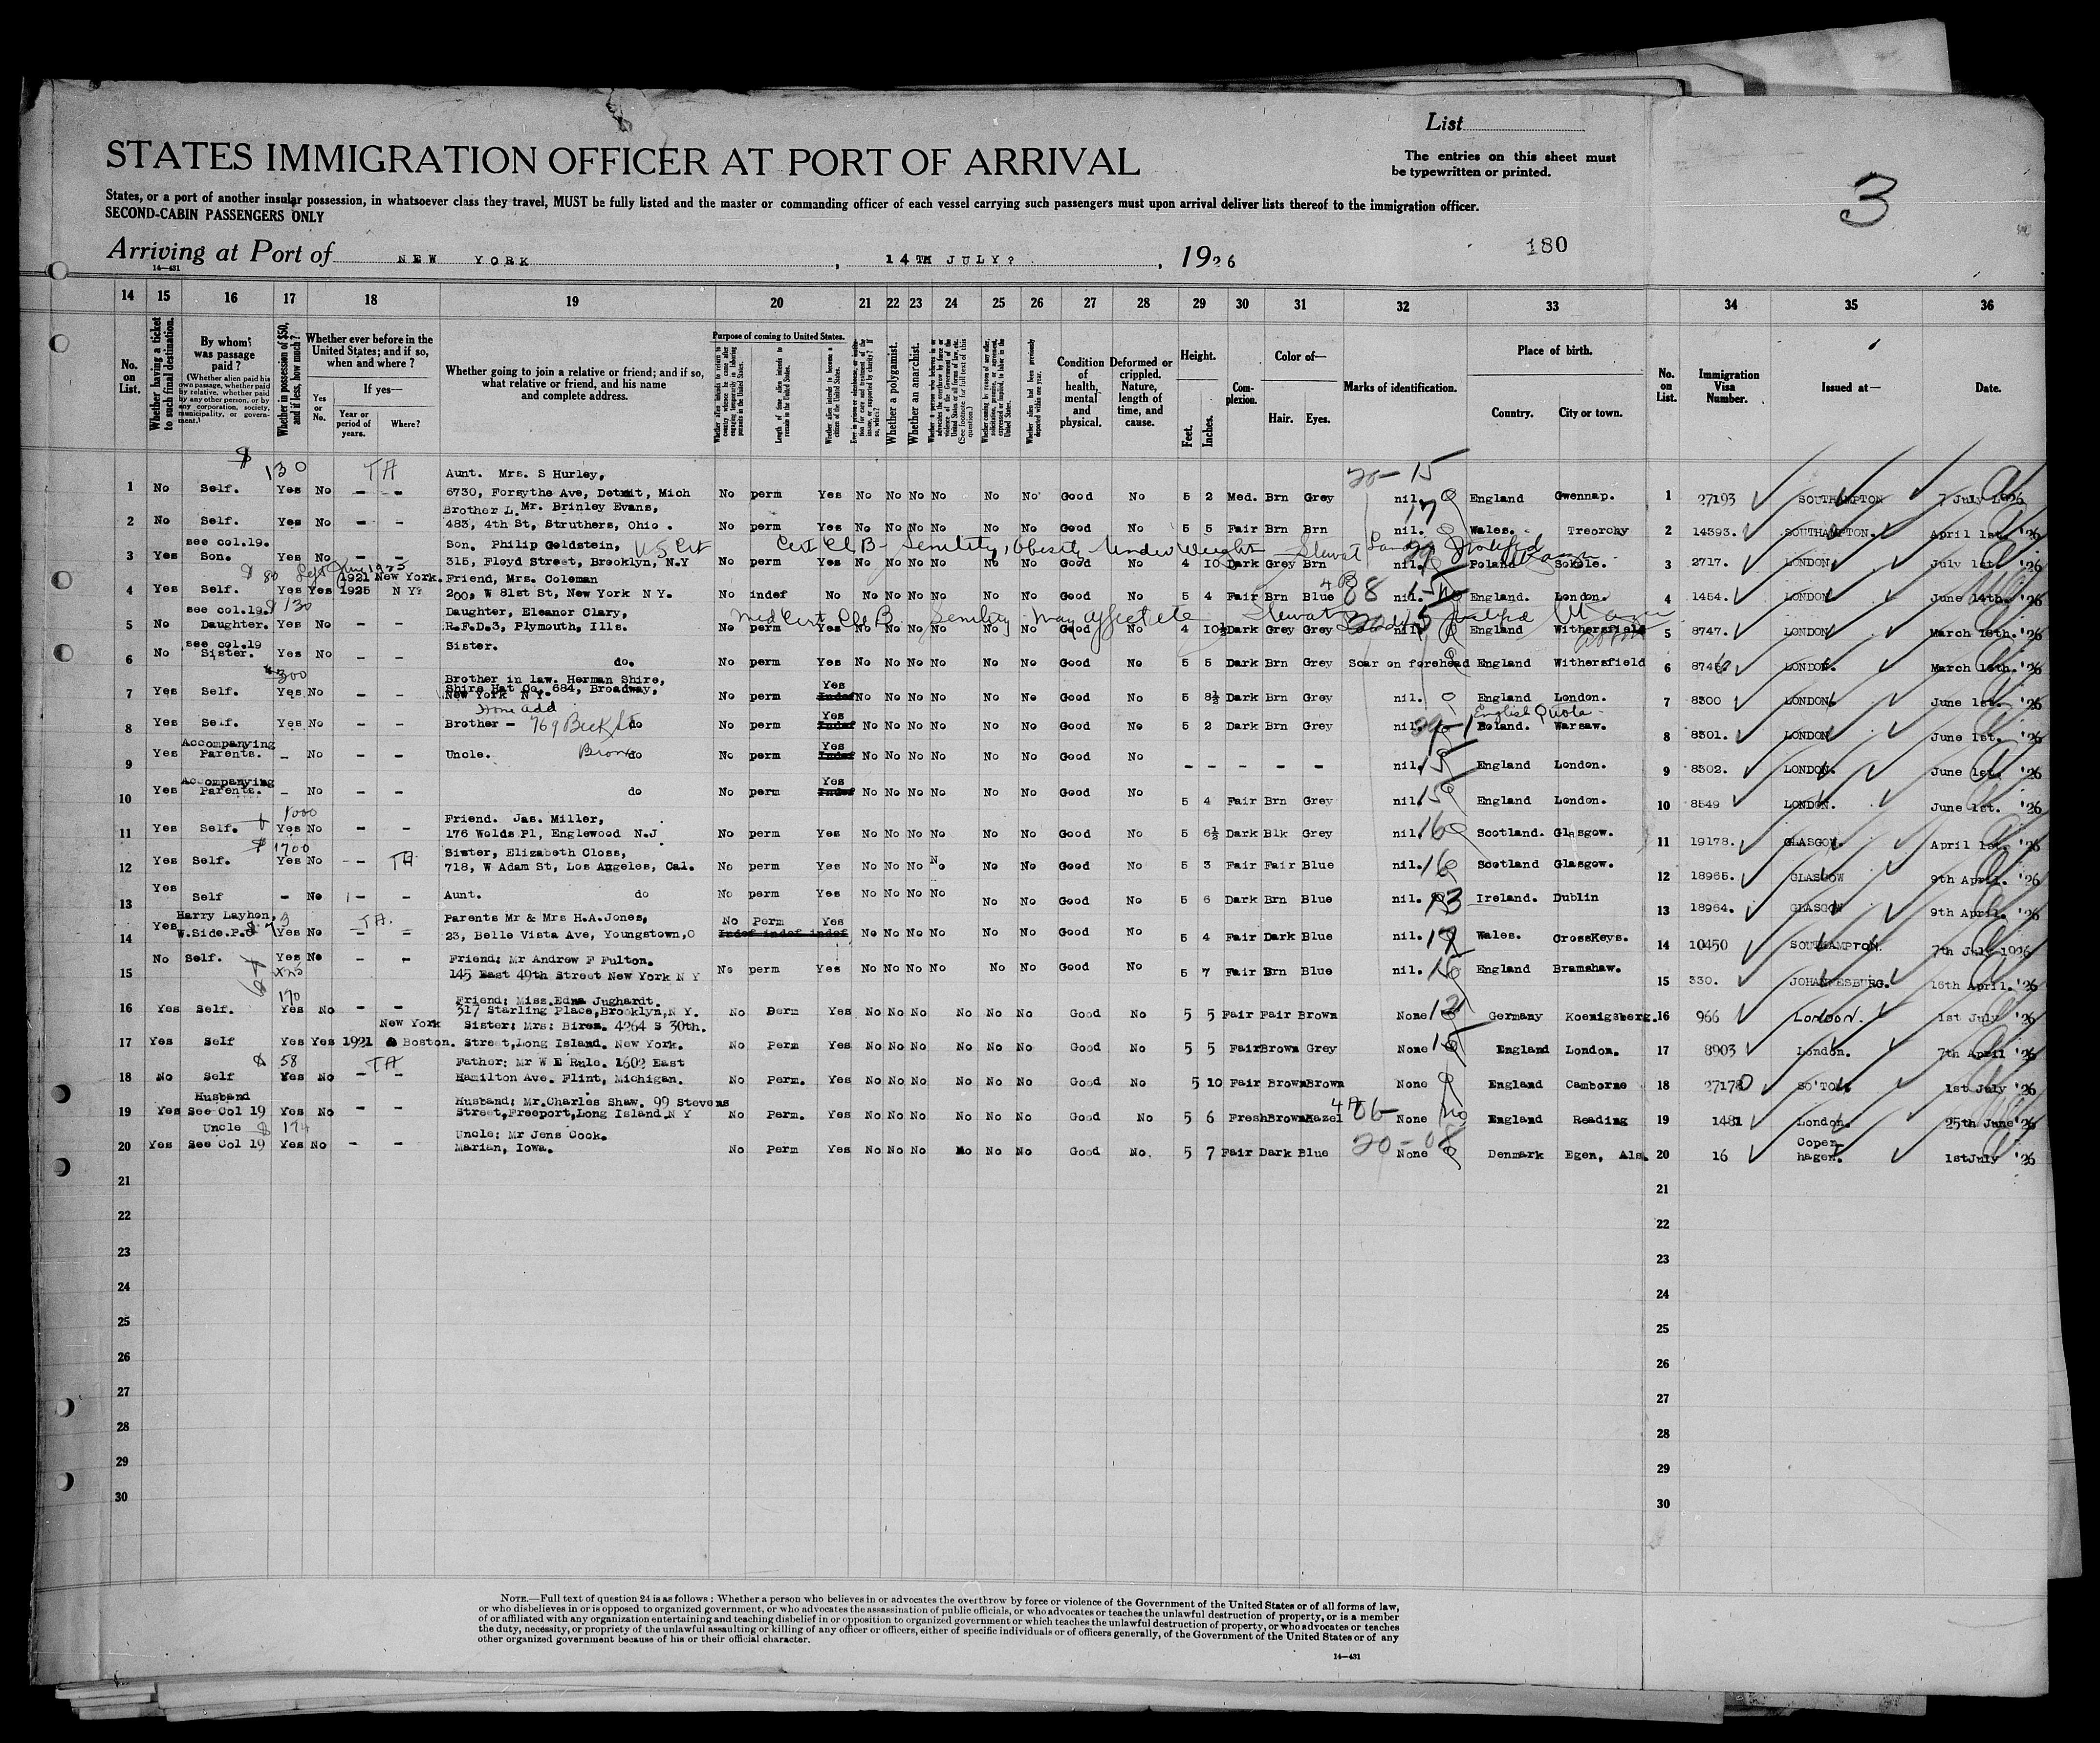 List
STATES IMMIGRATION OFFICER AT PORT OF ARRIVAL
The entries on this sheet must
be typewritten or printed.
3
States, or a port of another insular possession, in whatsoever class they travel, MUST be fully listed and the master or commanding officer of each vessel carrying such passengers must upon arrival deliver lists thereof to the immigration officer.
SECOND-CABIN PASSENGERS ONLY
180
Arriving at Port of NEW YORK , 14TH JULY? , 1926
14—431
14 15 16 17 18 19 20 21 22 23 24 25 26 27 28 29 30 31 32 33 34 35 36
No. on List.
Whether having a ticket to such final destination.
By whom was passage paid?
(Whether alien paid his own passage, whether paid by relative, whether paid by any other person, or by any corporation, society, municipality, or government.)
Whether in possession of $50, and if less, how much?
Whether ever before in the United States; and if so, when and where?
If yes—
Yes or No.
Year or period of years.
Where?
Whether going to join a relative or friend; and if so, what relative or friend, and his name and complete address.
Purpose of coming to United States.
Length of time alien intends to remain in the United States.
Whether alien intends to become a citizen of the United States.
Whether a polygamist.
Whether an anarchist.
Condition of health, mental and physical.
Deformed or crippled. Nature, length of time, and cause.
Height.
Feet. Inches.
Complexion.
Color of—
Hair. Eyes.
Marks of identification.
Place of birth.
Country. City or town.
No. on List.
Immigration Visa Number.
Issued at—
Date.
$ 130 TA Aunt. Mrs. S Hurley, 20-15
1 No Self. Yes No - - 6730, Forsythe Ave, Detroit, Mich No perm Yes No No No No No No Good No 5 2 Med. Brn Grey nil. England Gwennap. 1 27193 SOUTHAMPTON 7 July 1926
Brother L. Mr. Brinley Evans, 17
2 No Self. Yes No - - 483, 4th St, Struthers, Ohio. No perm Yes No No No No No No Good No 5 5 Fair Brn Brn nil. Wales. Treorchy 2 14393. SOUTHAMPTON. April 1st. '26
see col.19. Son. Philip Goldstein, US Cit Cert Cl B- Senility, Obesity Under Weight
3 Yes Son. Yes No - - 315, Floyd Street, Brooklyn, N.Y No perm Yes No No No No No No Good No 4 10 Dark Grey Brn nil. Poland Sokole. 3 2717. LONDON. July 1st. '26
$ 80 Left June 1925 1921 New York. Friend, Mrs. Coleman
4 Yes Self. Yes Yes 1925 N Y? 200, W 81st St, New York N Y. No indef No No No No No No No Good No 5 4 Fair Brn Blue nil. England. London. 4 1454. LONDON June 14th. '26
see col.19. $ 130 Daughter, Eleanor Clary, Med Cert Cl B Senility may affect etc
5 No Daughter. Yes No - - R.F.D.3, Plymouth, Ills. No perm Yes No No No No No No Good No 4 10½ Dark Grey Grey nil. England Withersfield 5 8747. LONDON March 18th. '26
see col.19 Sister.
6 No Sister. Yes No - - do. No perm Yes No No No No No No Good No 5 5 Dark Brn Grey Scar on forehead England Withersfield 6 8746 LONDON. March 18th. '26
$300 Brother in law. Herman Shire,
Shire Hat Co. 684, Broadway, Yes
7 Yes Self. Yes No - - New York N Y. No perm Indef No No No No No No Good No 5 8½ Dark Brn Grey nil. England London. 7 8300 LONDON. June 1st. '26
home add Yes English Quota
8 Yes Self. Yes No - - Brother - 769 Beck St. do No perm Indef No No No No No No Good No 5 2 Dark Brn Grey nil. Poland. Warsaw. 8 8301. LONDON June 1st. '26
Accompanying Yes
9 Yes Parents. - No - - Uncle. Bronx do No perm Indef No No No No No No Good No - - - - - nil. 15 England London. 9 8302. LONDON. June 1st. '26
Accompanying Yes
10 Yes Parents. - No - - do No perm Indef No No No No No No Good No 5 4 Fair Brn Grey nil. 15 England London. 10 8549 LONDON. June 1st. '26
1000 Friend. Jas. Miller,
11 Yes Self. Yes No - - 176 Wolds Pl, Englewood N.J No perm Yes No No No No No No Good No 5 6½ Dark Blk Grey nil. 16 Scotland. Glasgow. 11 19178. GLASGOW. April 1st. '26
$ 1700 Sister, Elizabeth Closs,
12 Yes Self. Yes No - - TA 718, W Adam St, Los Angeles, Cal. No perm Yes No No No No No No Good No 5 3 Fair Fair Blue nil. 16 Scotland Glasgow. 12 18965. GLASGOW 9th April. '26
13 Yes Self - No - - Aunt. do No perm Yes No No No No No No Good No 5 6 Dark Brn Blue nil. 13 Ireland. Dublin 13 18964. GLASGOW 9th April. '26
Harry Layhon, TA. Parents Mr & Mrs H.A.Jones, No Perm Yes
14 Yes W.Side.P.O Yes No - - 23, Belle Vista Ave, Youngstown,O Indef indef indef No No No No No No Good No 5 4 Fair Dark Blue nil. 17 Wales. CrossKeys. 14 10450 SOUTHAMPTON. 7th July 1926
No Self. Yes No - - Friend; Mr Andrew F Fulton.
15 145 East 49th Street New York N Y No perm Yes No No No No No No Good No 5 7 Fair Brn Blue nil. 15 England Bramshaw. 15 330. JOHANNESBURG. 16th April. '26
190 Friend; Miss.Edna Jughardt.
16 Yes Self. Yes No - - 317 Starling Place,Brooklyn,N Y. No Perm Yes No No No No No No Good No 5 5 Fair Fair Brown None 12 Germany Koenigsberg. 16 966 London. 1st July '26
New York Sister; Mrs; Biren. 4264 S 30th.
17 Yes Self Yes Yes 1921 & Boston. Street,Long Island. New York. No Perm Yes No No No No No No Good No 5 5 Fair Brown Grey None 15 England London. 17 8903 London. 7th April '26
$ 58 TA Father; Mr W E Rule. 1602 East
18 No Self Yes No - - Hamilton Ave. Flint, Michigan. No Perm. Yes No No No No No No Good No 5 10 Fair Brown Brown None England Camborne 18 27178 SO'TON. 1st July '26
Husband Husband; Mr.Charles Shaw. 99 Stevens
19 Yes See Col 19 Yes No - - Street,Freeport,Long Island.N Y No Perm. Yes No No No No No No Good No 5 6 Fresh Brown Hazel None England Reading 19 1481 London. 25th June '26
Uncle $ 174 Uncle; Mr Jens Cook. 20-08 Copen
20 Yes See Col 19 Yes No - - Marian, Iowa. No Perm Yes No No No No No No Good No. 5 7 Fair Dark Blue None Denmark Egen, Als. 20 16 hagen. 1stJuly '26
21 21
22 22
23 23
24 24
25 25
26 26
27 27
28 28
29 29
30 30
NOTE.—Full text of question 24 is as follows: Whether a person who believes in or advocates the overthrow by force or violence of the Government of the United States or of all forms of law,
or who disbelieves in or is opposed to organized government, or who advocates the assassination of public officials, or who advocates or teaches the unlawful destruction of property, or is a member
of or affiliated with any organization entertaining and teaching disbelief in or opposition to organized government or which teaches the unlawful destruction of property, or who advocates or teaches
the duty, necessity, or propriety of the unlawful assaulting or killing of any officer or officers, either of specific individuals or of officers generally, of the Government of the United States or of any
other organized government because of his or their official character.
14—431